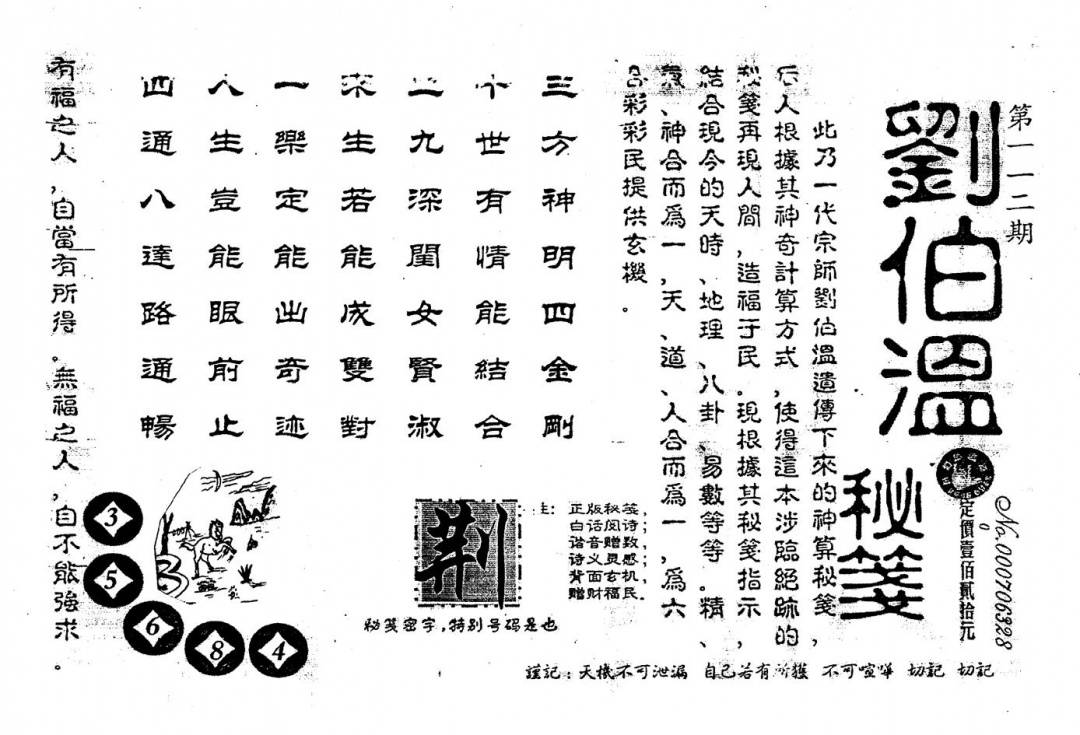 第一一二期
劉伯溫
秘箋
No.000706328
定價壹佰貳拾元
此乃一代宗師劉伯溫遺傳下來的神算秘箋，
后人根據其神奇計算方式，使得這本涉臨絕跡的
秘箋再現人間，造福于民。現根據其秘箋指示，
結合現今的天時、地理、八卦、易數等等。精、
氣、神合而爲一，天、道、人合而爲一，爲六
合彩彩民提供玄機。
三方神明四金剛
十世有情能結合
二九深閨女賢淑
來生若能成雙對
一樂定能出奇迹
人生豈能眼前止
四通八達路通暢
有福之人，自當有所得。無福之人，自不能強求。
3
5
6
8
4
荆
秘笺密字，特别号码是也
注：正版秘笺；
白话阅诗；
谐音赠数；
诗义灵感；
背面玄机，
赠财福民。
謹記：天機不可泄漏 自己若有所獲 不可喧嘩 切記 切記